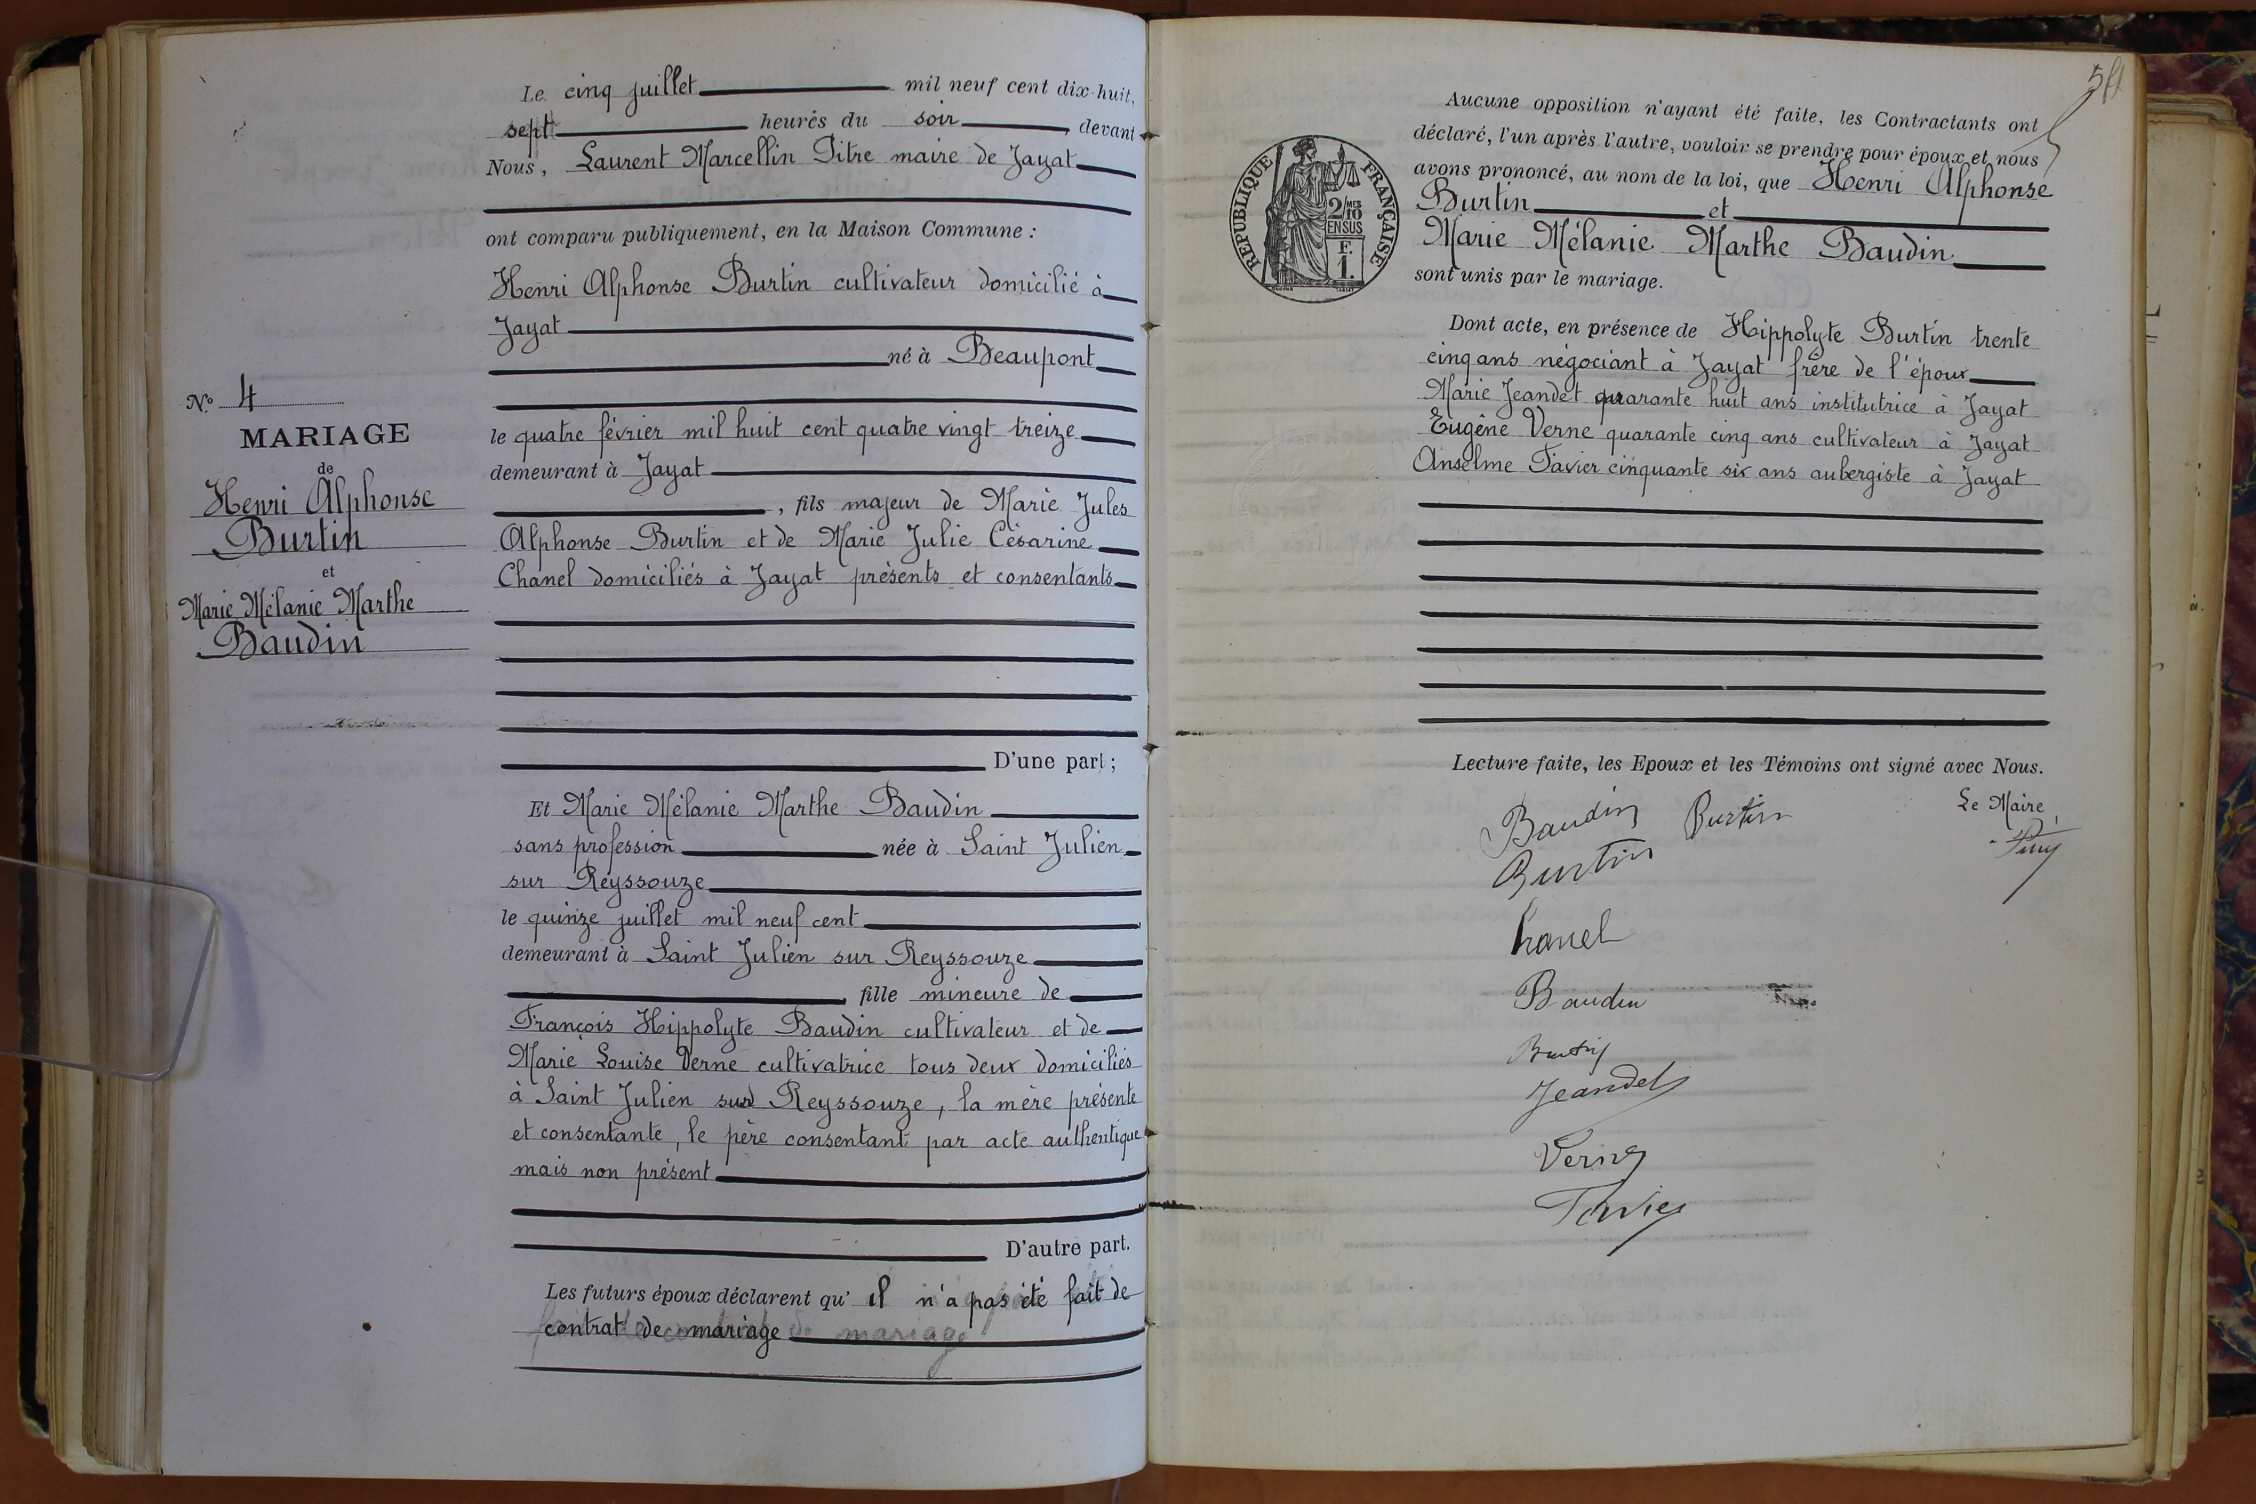 Le cinq juillet mil neuf cent dix-huit,
sept heures du soir, devant
Nous, Laurent Marcellin Pitre maire de Jayat
ont comparu publiquement, en la Maison Commune :
Henri Alphonse Burtin cultivateur domicilié à
Jayat
né à Beaupont
le quatre février mil huit cent quatre vingt treize
demeurant à Jayat
, fils majeur de Marie Jules
Alphonse Burtin et de Marie Julie Césarine
Chanel domiciliés à Jayat présents et consentants
D'une part ;
Et Marie Mélanie Marthe Baudin
sans profession née à Saint Julien
sur Reyssouze
le quinze juillet mil neuf cent
demeurant à Saint Julien sur Reyssouze
, fille mineure de
François Hippolyte Baudin cultivateur et de
Marie Louise Verne cultivatrice tous deux domiciliés
à Saint Julien sur Reyssouze, la mère présente
et consentante, le père consentant par acte authentique
mais non présent
D'autre part.
Les futurs époux déclarent qu'il n'a pas été fait de
contrat de mariage
N° 4
MARIAGE
de
Henri Alphonse
Burtin
et
Marie Mélanie Marthe
Baudin
RÉPUBLIQUE FRANÇAISE
2/10 MES
EN SUS
F.
1.
Aucune opposition n'ayant été faite, les Contractants ont
déclaré, l'un après l'autre, vouloir se prendre pour époux et nous
avons prononcé, au nom de la loi, que Henri Alphonse
Burtin et
Marie Mélanie Marthe Baudin
sont unis par le mariage.
Dont acte, en présence de Hippolyte Burtin trente
cinq ans négociant à Jayat frère de l'époux
Marie Jeandet quarante huit ans institutrice à Jayat
Eugène Verne quarante cinq ans cultivateur à Jayat
Anselme Favier cinquante six ans aubergiste à Jayat
Lecture faite, les Epoux et les Témoins ont signé avec Nous.
Baudin Burtin Le Maire,
Burtin
Chanel
Baudin
Burtin
Jeandet
Verne
Favier